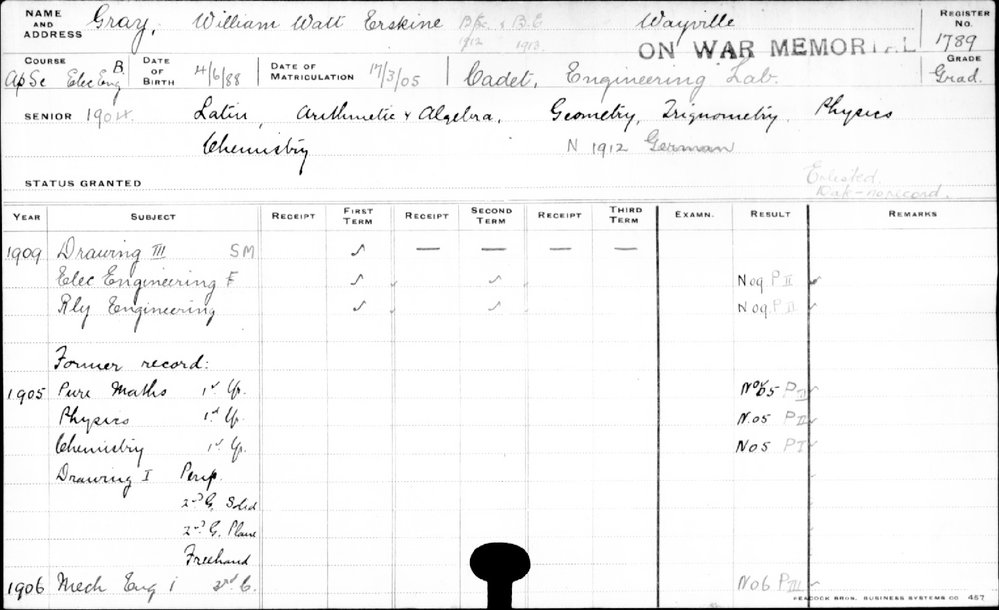 NAME AND ADDRESS Gray, William Watt Erskine B.Sc. & B.E Wayville REGISTER No.
1912 1913 ON WAR MEMORIAL 1789
COURSE ApSc Elec Eng B. DATE OF BIRTH 4/6/88 DATE OF MATRICULATION 17/3/05 Cadet, Engineering Lab. GRADE Grad.
SENIOR 1904 Latin, Arithmetic & Algebra, Geometry, Trignometry, Physics
Chemistry N 1912 German
STATUS GRANTED Enlisted.
no record.
YEAR SUBJECT RECEIPT FIRST TERM RECEIPT SECOND TERM RECEIPT THIRD TERM EXAMN. RESULT REMARKS
1909 Drawing III SM ✓ — — — —
Elec Engineering F ✓ ✓ ✓ N 09 P II ✓
Rly Engineering ✓ ✓ ✓ N 09 P II ✓
Former record:
1905 Pure Maths 1st Yr. No 05 P II ✓
Physics 1st Yr. N.05 P II ✓
Chemistry 1st Yr. N05 P I ✓
Drawing I Persp.
2nd G. Solid
2nd G. Plane
Freehand
1906 Mech Eng i N06 P III ✓
PEACOCK BROS. BUSINESS SYSTEMS CO 457